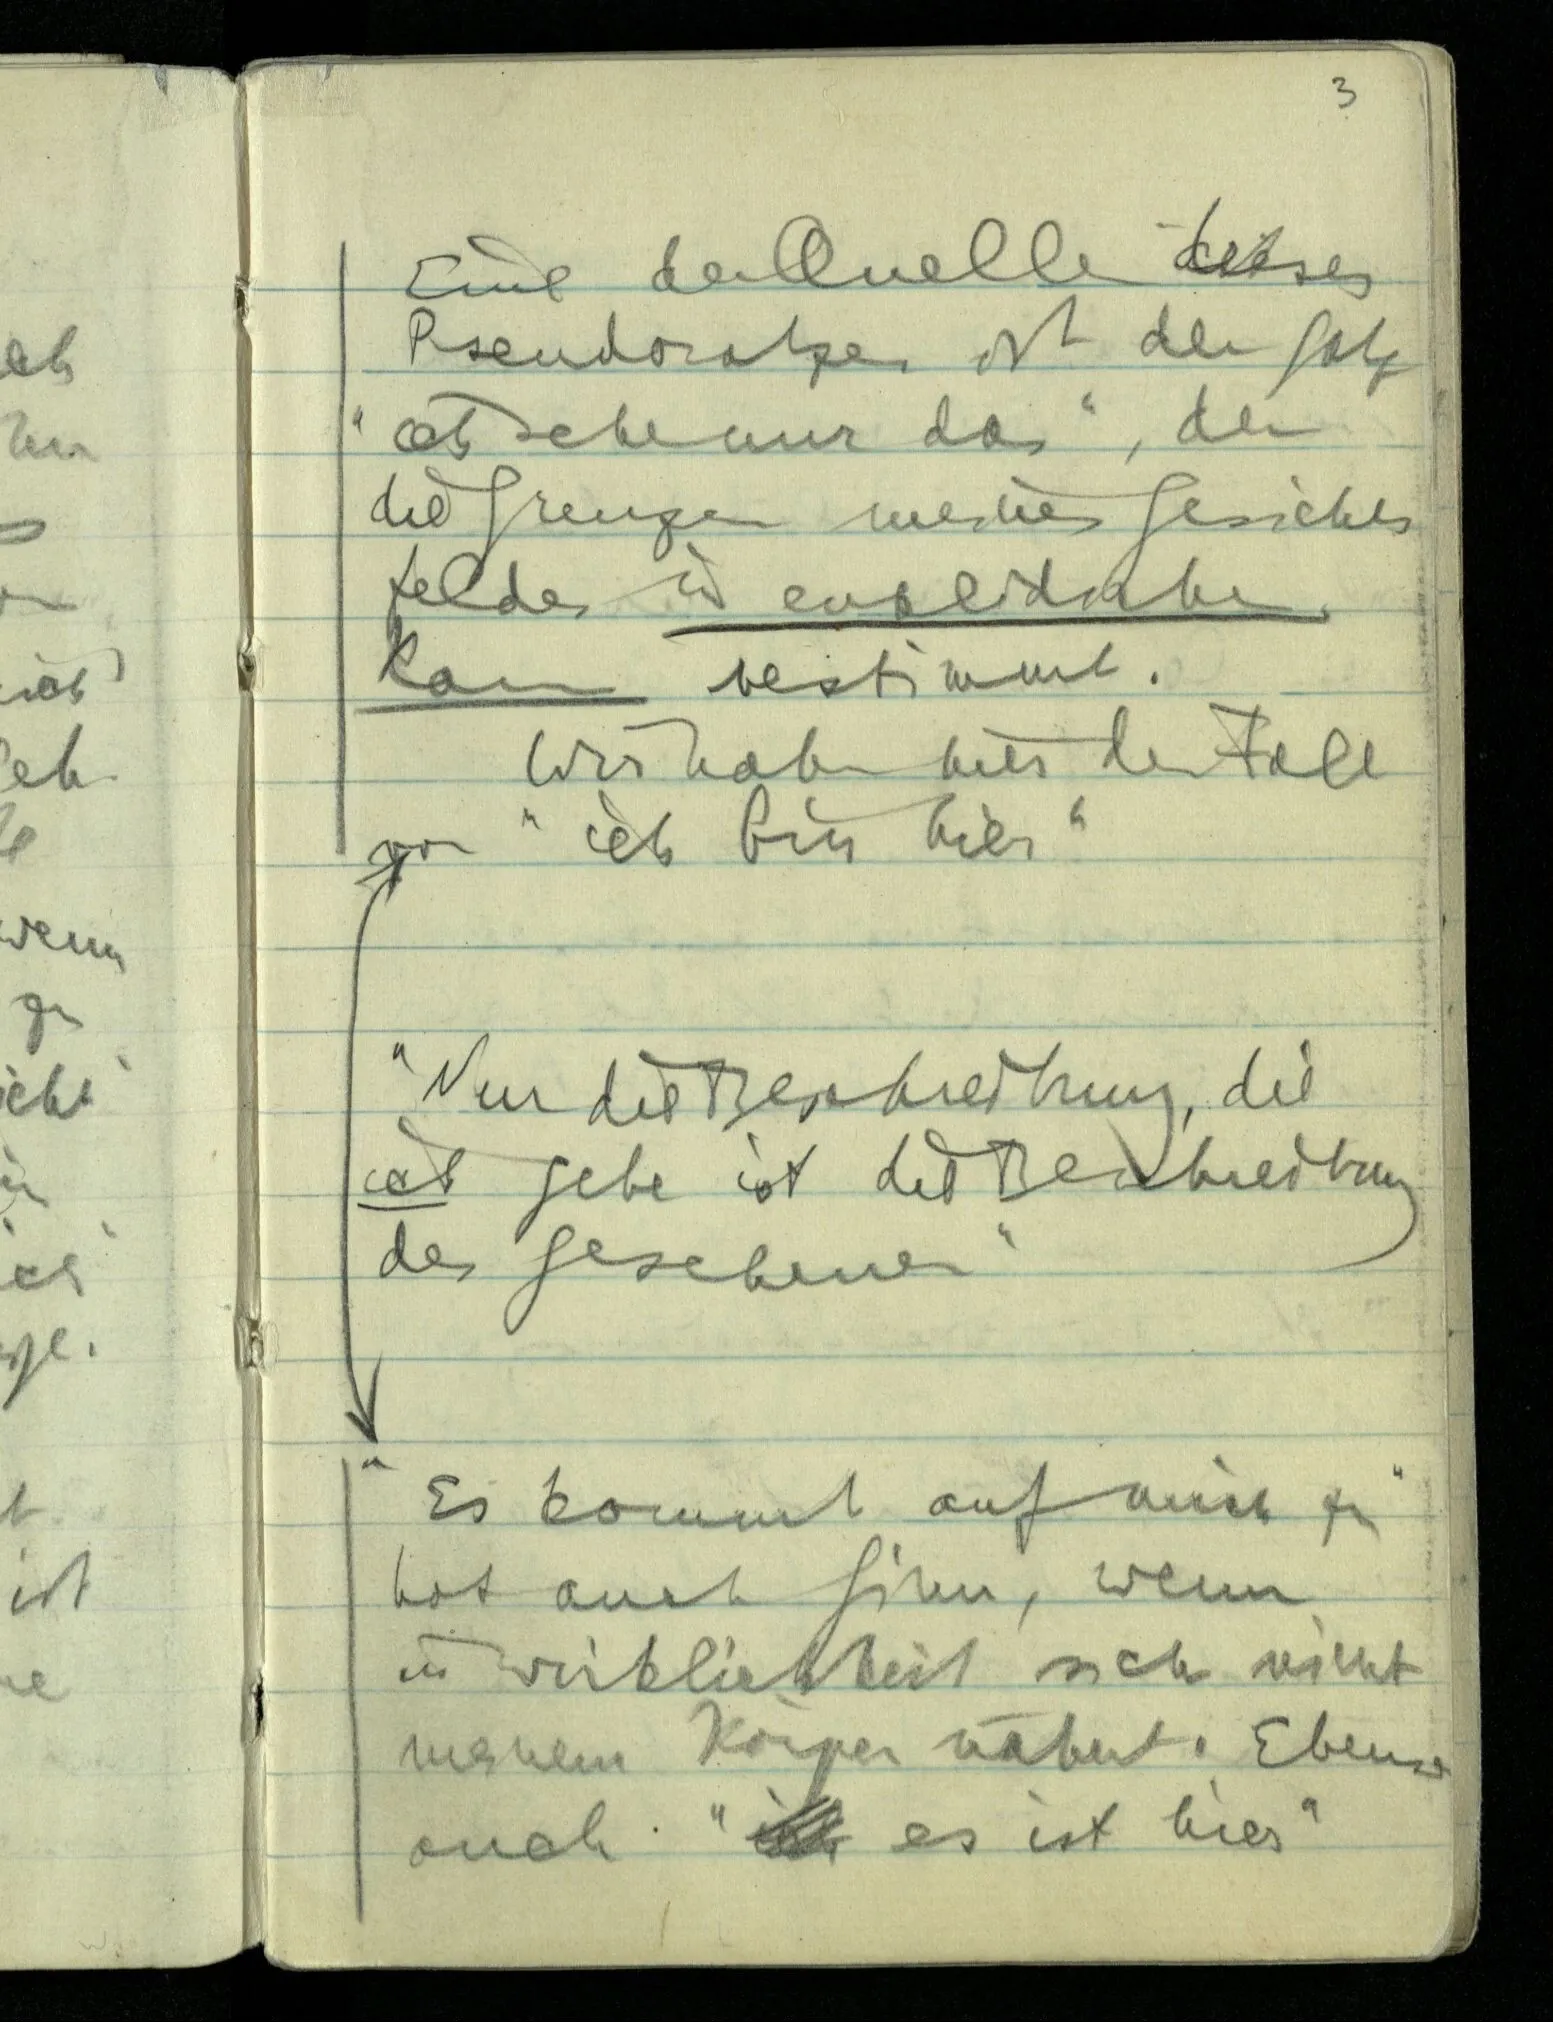 3
Eine der Quellen dieses
Pseudosatzes ist der Satz
"ich sehe nur das", der
die Grenzen meines Gesichts
feldes im euklidischen
Raum bestimmt.
Wir haben hier den Fall
von "ich bin hier"
"Nur die Beschreibung, die
ich gebe ist die Beschreibung
des Gesehenen"
"Es kommt auf mich zu"
hat auch Sinn, wenn
in Wirklichkeit sich nicht
meinem Körper nähert. Ebenso
auch "es ist hier"
wenn
ist